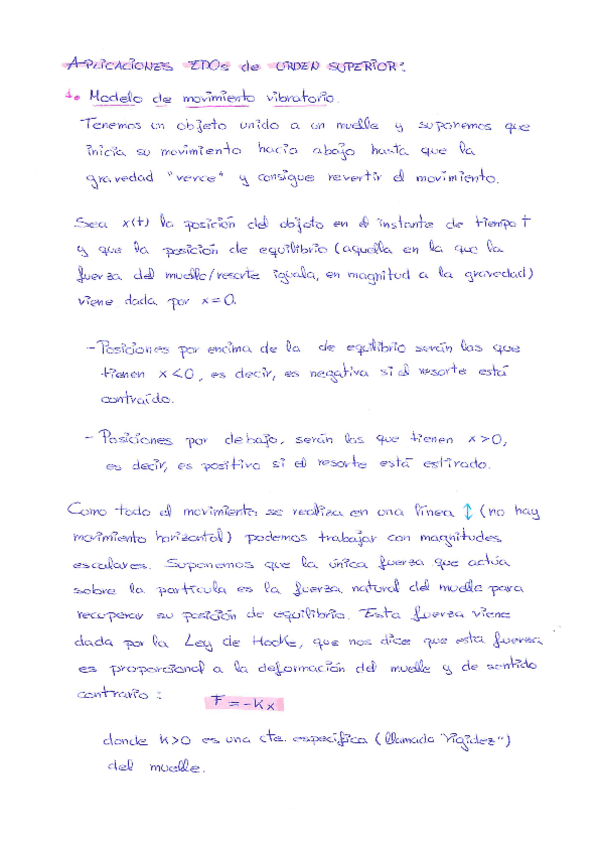 APLICACIONES EDOs de ORDEN SUPERIOR:
1. Modelo de movimiento vibratorio.
Tenemos un objeto unido a un muelle y suponemos que
inicia su movimiento hacia abajo hasta que la
gravedad "vence" y consigue revertir el movimiento.
Sea x(t) la posición del objeto en el instante de tiempo t
y que la posición de equilibrio (aquella en la que la
fuerza del muelle/resorte iguala, en magnitud a la gravedad)
viene dada por x=0.
- Posiciones por encima de la de equilibrio serán las que
tienen x<0, es decir, es negativa si el resorte está
contraído.
- Posiciones por debajo, serán las que tienen x>0,
es decir, es positivo si el resorte está estirado.
Como todo el movimiento se realiza en una línea ↕ (no hay
movimiento horizontal) podemos trabajar con magnitudes
escalares. Suponemos que la única fuerza que actúa
sobre la partícula es la fuerza natural del muelle para
recuperar su posición de equilibrio. Esta fuerza viene
dada por la Ley de Hooke, que nos dice que esta fuerza
es proporcional a la deformación del muelle y de sentido
contrario:
F = -Kx
donde K>0 es una cte. específica (llamada "rigidez")
del muelle.